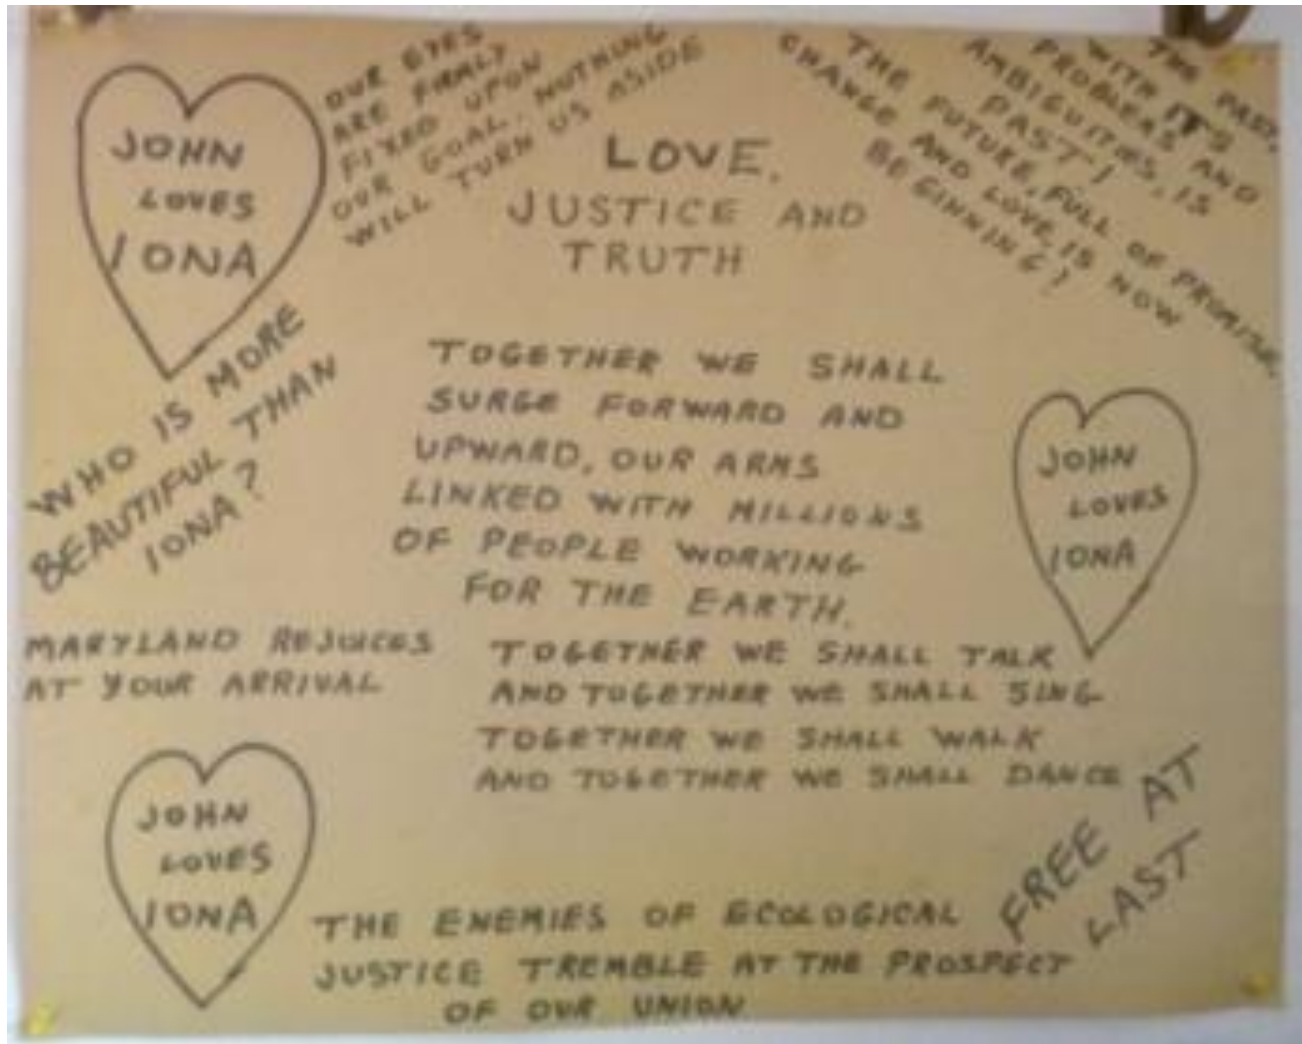 JOHN
LOVES
IONA
OUR EYES
ARE FIRMLY
FIXED UPON
OUR GOAL. NOTHING
WILL TURN US ASIDE
LOVE,
JUSTICE AND
TRUTH
THE PAST,
WITH IT'S
PROBLEMS AND
AMBIGUITIES, IS
PAST!
THE FUTURE, FULL OF PROMISE,
CHANGE AND LOVE, IS NOW
BEGINNING!
WHO IS MORE
BEAUTIFUL THAN
IONA?
TOGETHER WE SHALL
SURGE FORWARD AND
UPWARD, OUR ARMS
LINKED WITH MILLIONS
OF PEOPLE WORKING
FOR THE EARTH.
JOHN
LOVES
IONA
MARYLAND REJOICES
AT YOUR ARRIVAL
TOGETHER WE SHALL TALK
AND TOGETHER WE SHALL SING
TOGETHER WE SHALL WALK
AND TOGETHER WE SHALL DANCE
JOHN
LOVES
IONA
FREE AT
LAST
THE ENEMIES OF ECOLOGICAL
JUSTICE TREMBLE AT THE PROSPECT
OF OUR UNION